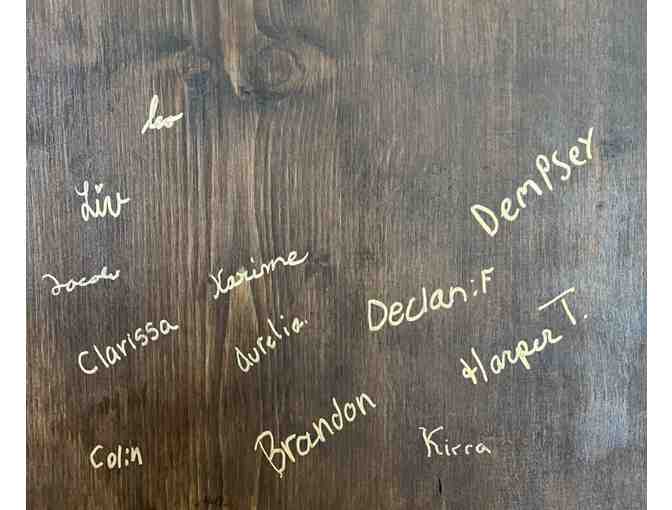 Leo
Liv
Dempsey
Jacob
Xarime
Declan:F
Clarissa
Aurelia.
Harper T.
Brandon
Colin
Kirra